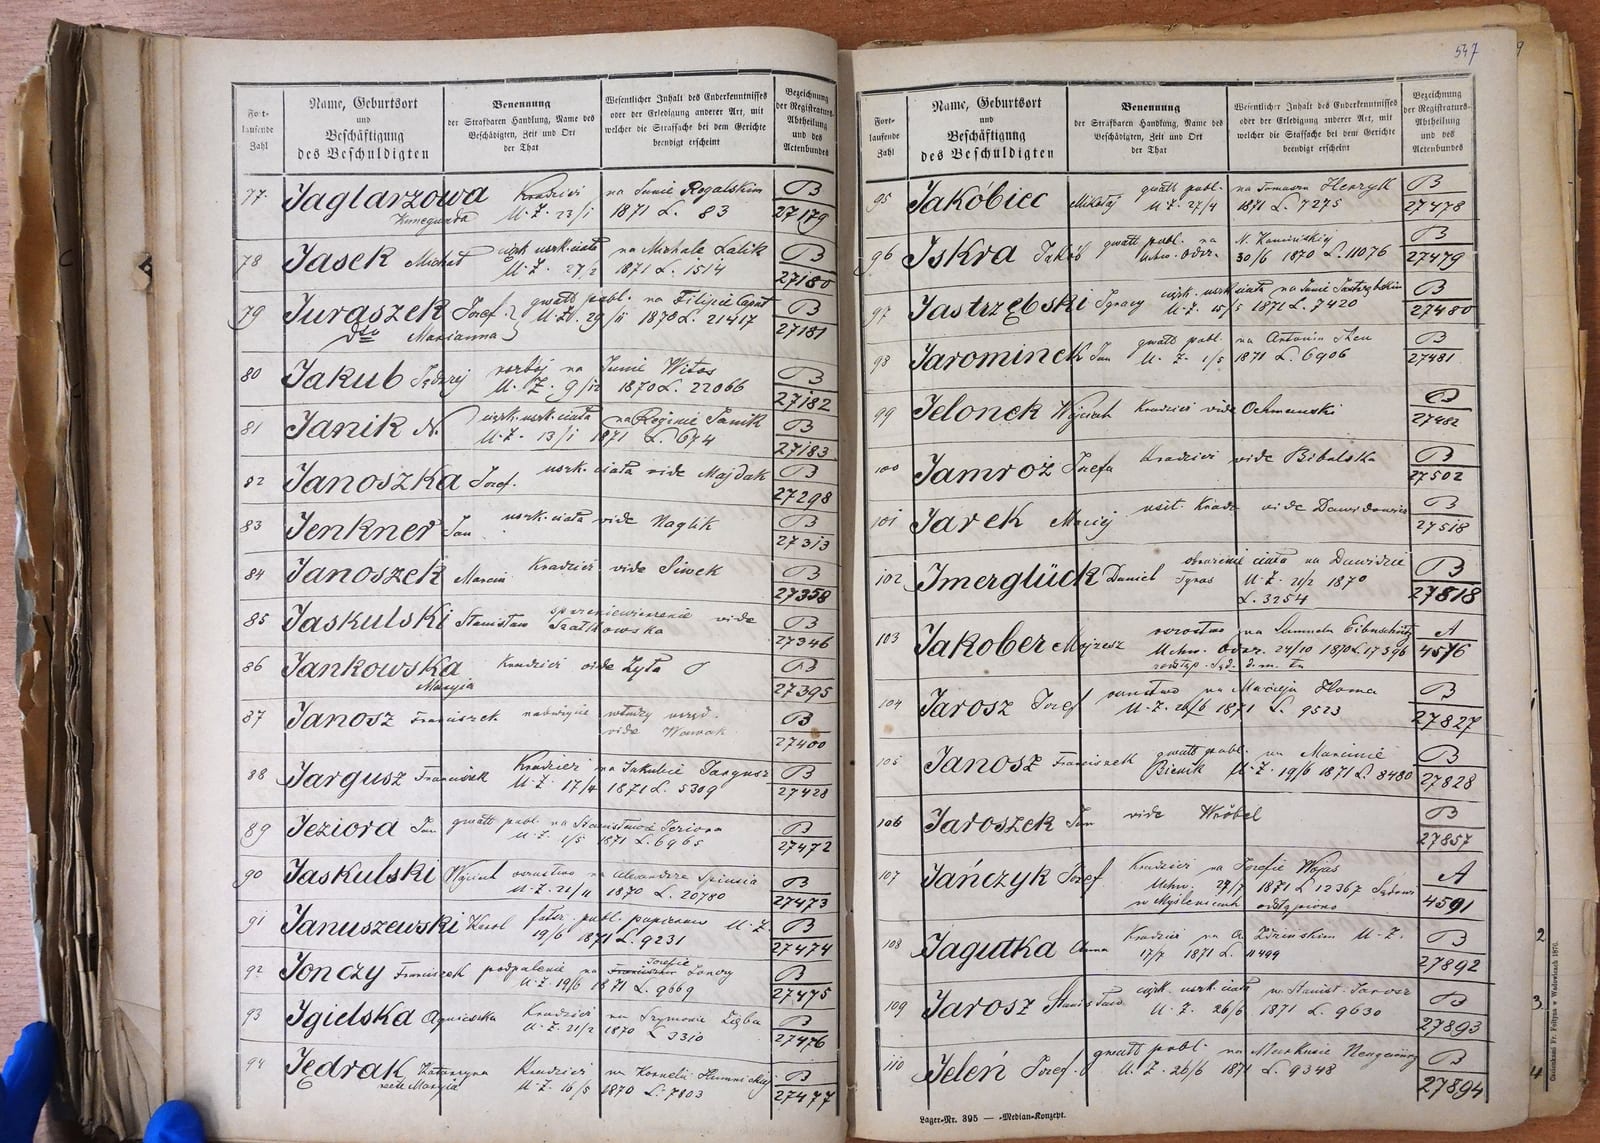 547
Fort-
laufende
Zahl
Name, Geburtsort
und
Beschäftigung
des Beschuldigten
Benennung
der Strafbaren Handlung, Name des
Beschädigten, Zeit und Ort
der That
Wesentlicher Inhalt des Enderkenntnisses
oder der Erledigung anderer Art, mit
welcher die Straffache bei dem Gerichte
beendigt erscheint
Bezeichnung
der Registraturs-
Abtheilung
und des
Actenbundes
77 Jaglarzowa Kradzież na Rogalskim B
Kunegunda U. Z. 23/1 1871 L. 83 27179
78 Jasek Michał cięż. uszk. ciała na Michale Lalik B
U. Z. 27/2 1871 L. 1514 27180
79 Juraszek Józef gwałt publ. na Filipie B
dto Marianna U. Z. 29/11 1870 L. 21417 27181
80 Jakub Jędrzej rozbój na Witos B
U. Z. 9/12 1870 L. 22066 27182
81 Janik N. cięż. uszk. ciała na Reginie Janik B
U. Z. 13/1 1871 L. 674 27183
82 Janoszka Józef uszk. ciała vide Majdak B
27298
83 Jenkner Jan uszk. ciała vide Naglik B
27313
84 Janoszek Marcin Kradzież vide Siwek B
27358
85 Jaskulski Stanisław sprzeniewierzenie vide B
27346
86 Jankowska Kradzież vide Żyła B
Maryja 27395
87 Janosz Franciszek nadużycie władzy urzęd. B
vide Wawak 27400
88 Jargusz Franciszek Kradzież na Jakubie Jargusz B
U. Z. 17/4 1871 L. 5309 27428
89 Jeziora Jan gwałt publ. na Stanisławie Jeziora B
U. Z. 1/5 1871 L. 6965 27472
90 Jaskulski oszustwo na B
U. Z. 21/11 1870 L. 20780 27473
91 Januszewski Karol publ. papierów U. Z. B
19/6 1871 L. 9231 27474
92 Jonczy Franciszek podpalenie na Józefie Jonczy B
U. Z. 19/6 1871 L. 9669 27475
93 Jgielska Agnieszka Kradzież na Szymonie Zięba B
U. Z. 21/2 1870 L. 3310 27476
94 Jędrak Katarzyna Kradzież na Kornelii B
recte Maryja U. Z. 16/5 1870 L. 7803 27477
Fort-
laufende
Zahl
Name, Geburtsort
und
Beschäftigung
des Beschuldigten
Benennung
der Strafbaren Handlung, Name des
Beschädigten, Zeit und Ort
der That
Wesentlicher Inhalt des Enderkenntnisses
oder der Erledigung anderer Art, mit
welcher die Straffache bei dem Gerichte
beendigt erscheint
Bezeichnung
der Registraturs-
Abtheilung
und des
Actenbundes
95 Jakóbiec Mikołaj gwałt publ. na Tomaszu Henryk B
U. Z. 27/4 1871 L. 7275 27478
96 Jskra Jakób gwałt publ. na N. Kamińskiej B
Uchw. Odrz. 30/6 1870 L. 11076 27479
97 Jastrzębski Ignacy cięż. uszk. ciała na Jastrzębskim B
U. Z. 15/5 1871 L. 7420 27480
98 Jarominek Jan gwałt publ. na Antonim B
U. Z. 1/5 1871 L. 6906 27481
99 Jelonek Wojciech Kradzież vide Ochmanski B
27482
100 Jamroż Józefa Kradzież vide Bibulska B
27502
101 Jarek Maciej usił. Kradz. vide Dawidowicz B
27518
102 Jmerglück Daniel obrażenie ciała na Dawidzie B
U. Z. 21/2 1870
L. 3254 27818
103 Jakober Mojżesz oszustwo na Samuelu Eibenschütz A
Uchw. Odrz. 24/10 1870 L. 17396 4576
104 Jarosz Józef oszustwo na Macieju Homa B
U. Z. 26/6 1871 L. 9523 27827
105 Janosz Franciszek gwałt publ. na Marcinie B
Bienik U. Z. 19/6 1871 L. 8480 27828
106 Jaroszek Jan vide Wróbel B
27857
107 Jańczyk Józef Kradzież na Józefie Wojas A
Uchw. 27/7 1871 L. 12367 Sądowi
w Myślenicach odstąpiono 4591
108 Jagutka Anna Kradzież na U. Z. B
17/7 1871 L. 11499 27892
109 Jarosz Stanisław cięż. uszk. ciała na Stanisł. Jarosz B
U. Z. 26/6 1871 L. 9630 27893
110 Jeleń Józef gwałt publ. na Markusie B
U. Z. 26/6 1871 L. 9348 27894
Lager-Nr. 395 — Median-Konzept.
Czcionkami Fr. Foltyna w Wadowicach 1870.
2
3
4